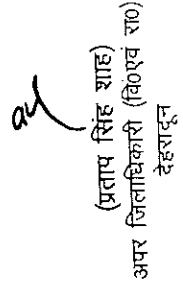 (प्रताप सिंह शाह)
अपर जिलाधिकारी (वि०एवं रा०)
देहरादून